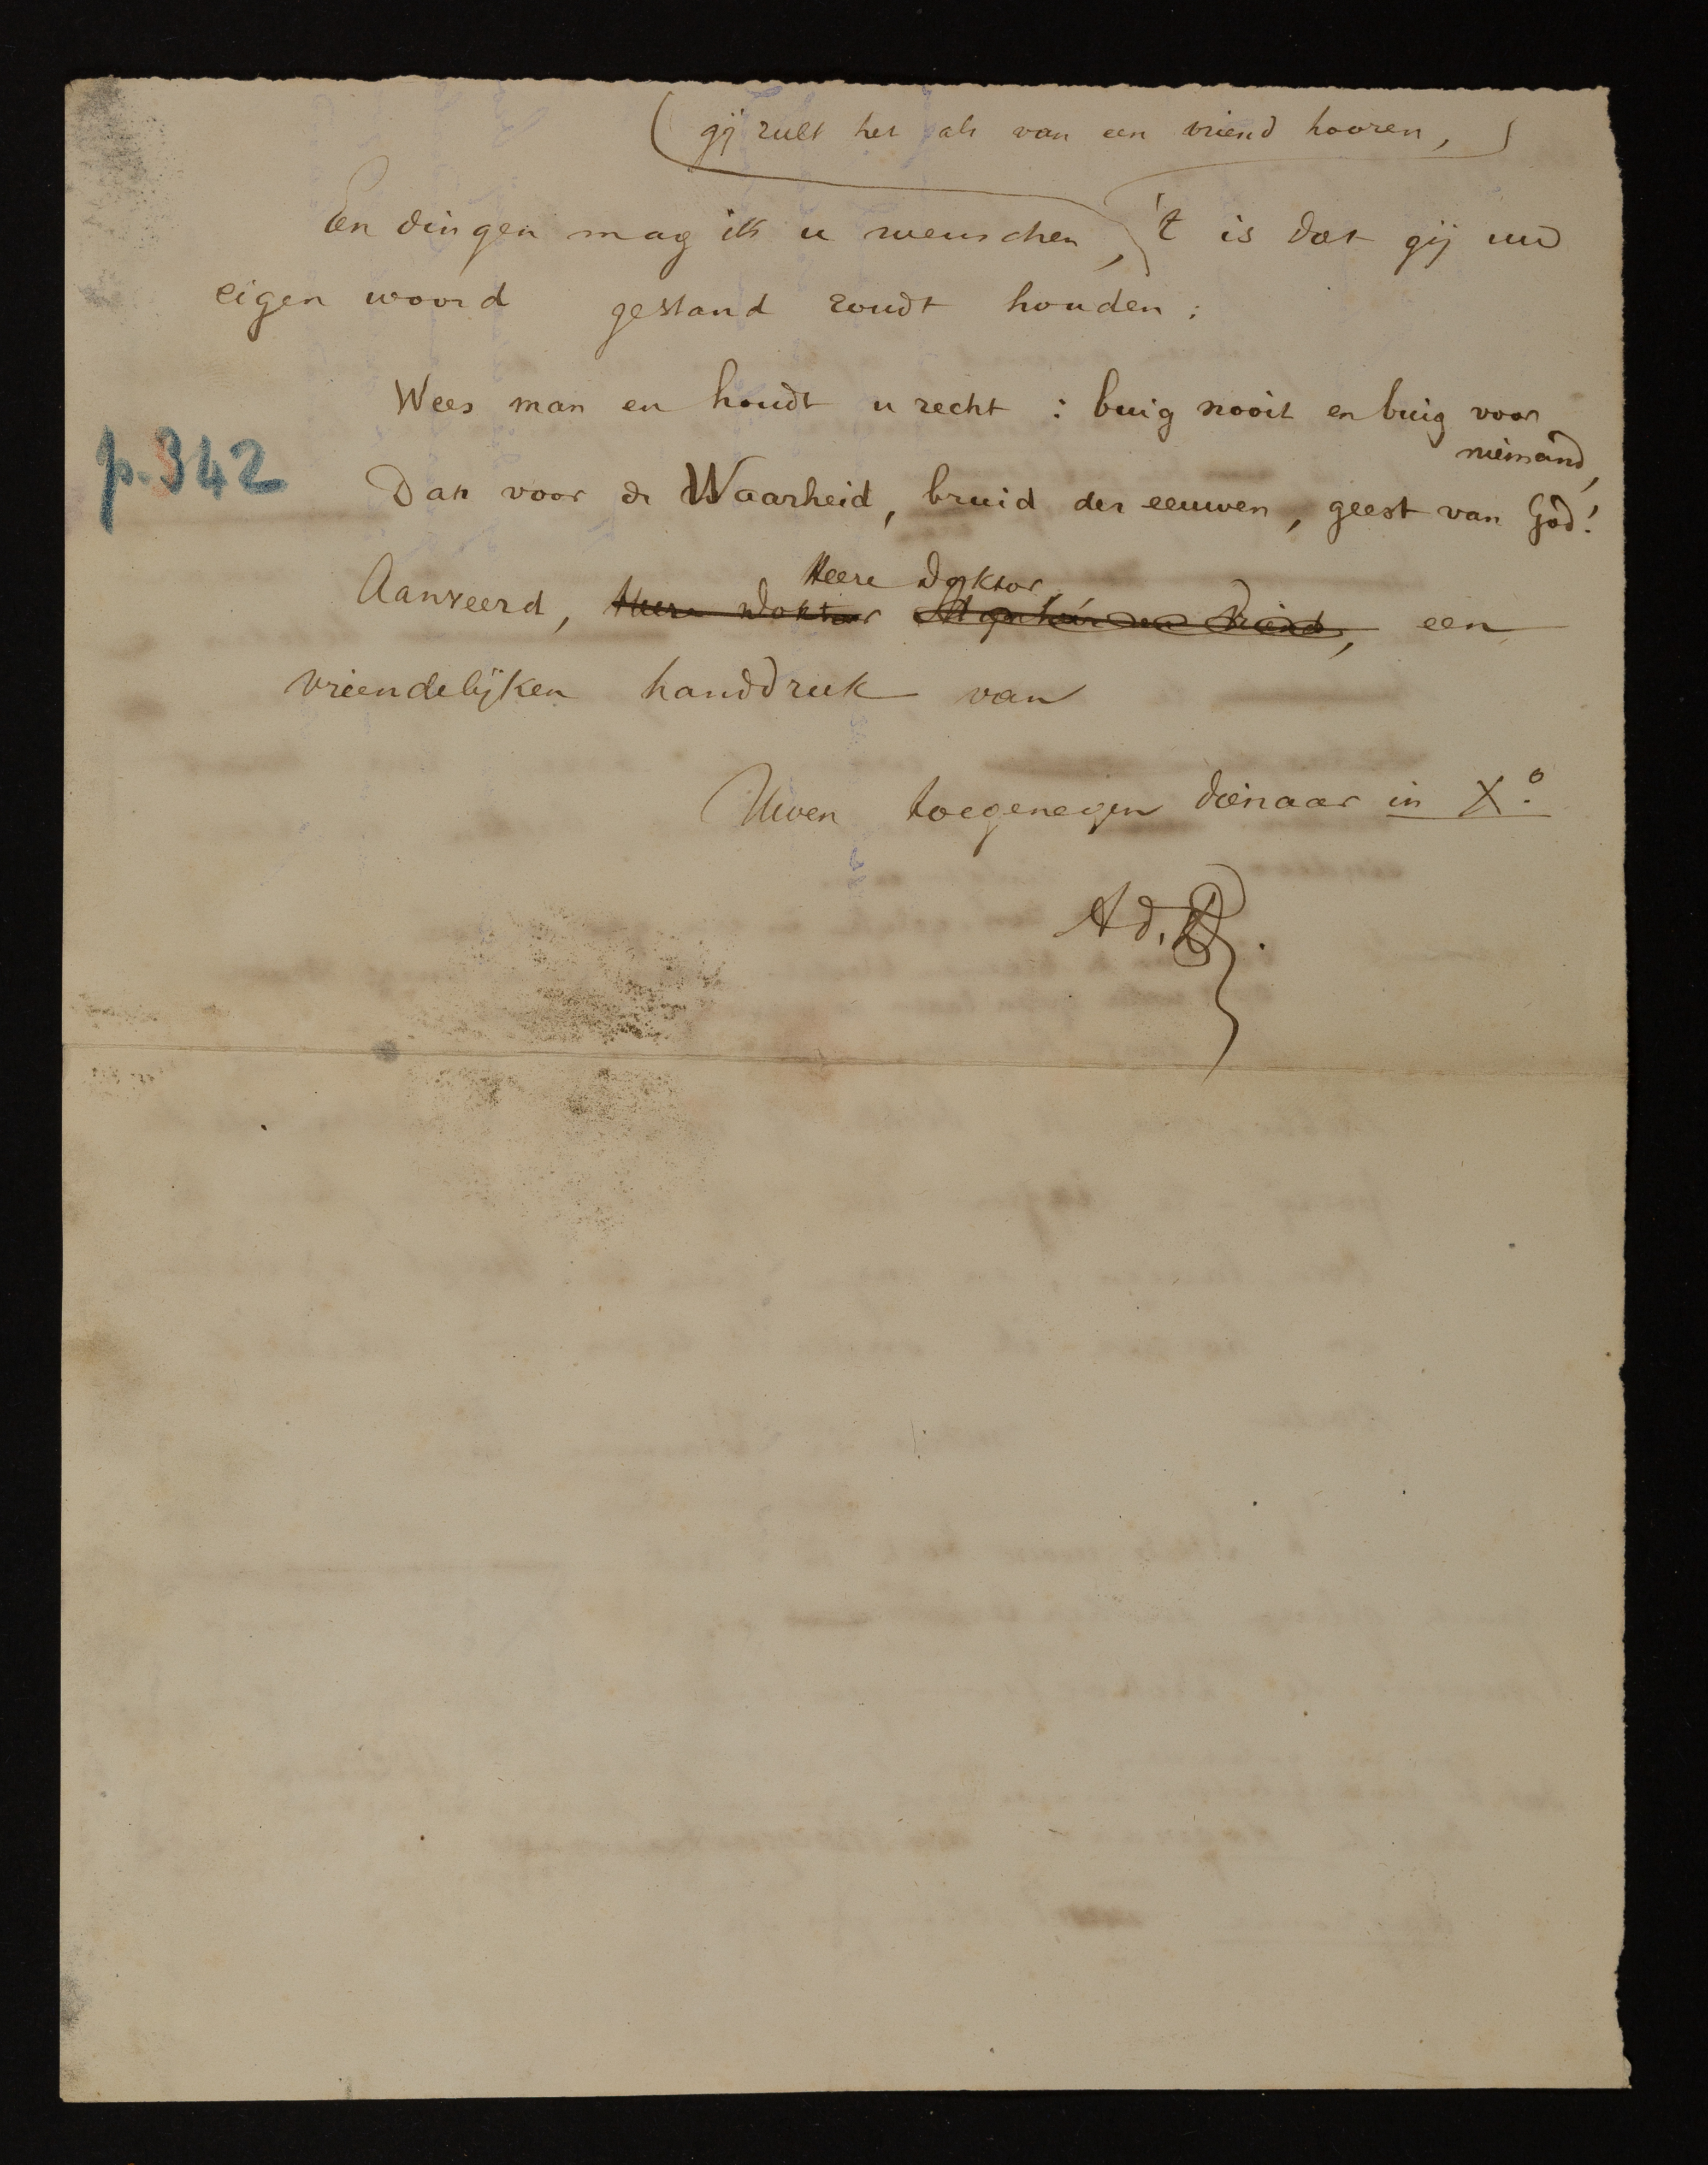 gij zult het als van een vriend hooren,
Een dingen mag ik u wenschen, 't is dat gij uw
eigen woord gestand zoudt houden:
Wees man en houdt u recht: buig nooit en buig voor
niemand,
p. 342
Dan voor de Waarheid, bruid der eeuwen, geest van God!
Heere Doktor,
Aanveerd, Heere Doktor een
vriendelijken handdruk van
Uwen toegenegen dienaar in X.º
Ad.